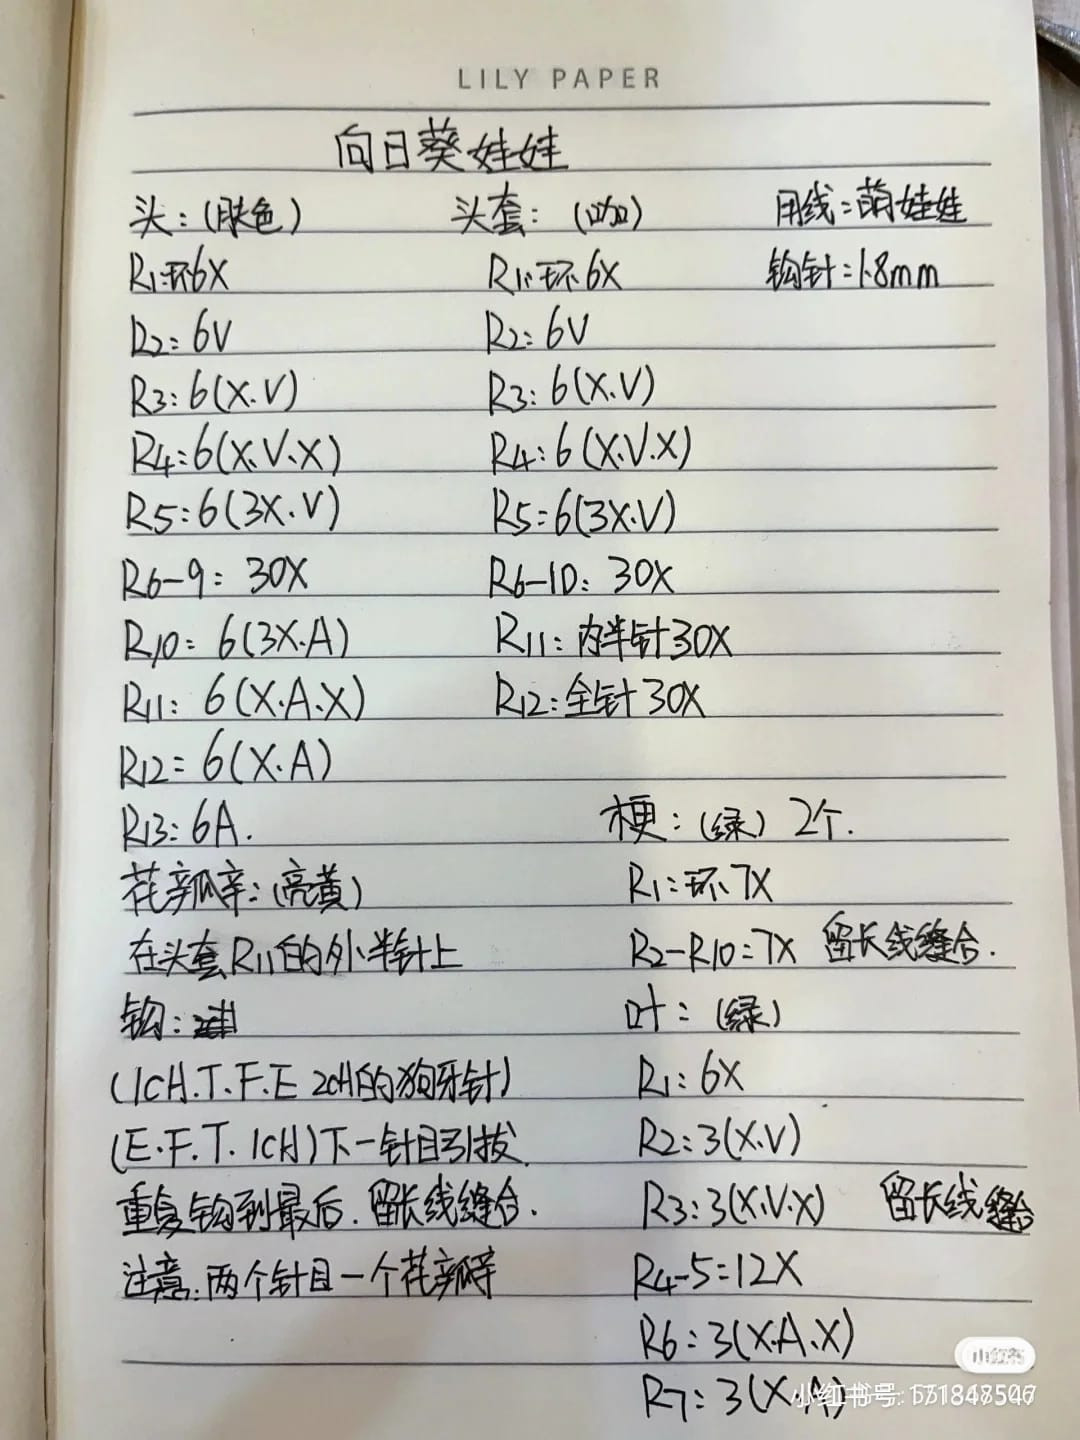 LILY PAPER
向日葵娃娃
头：（肤色） 头套：（咖） 用线：萌娃娃
R1：环6X R1：环6X 钩针：1.8mm
R2：6V R2：6V
R3：6(X.V) R3：6(X.V)
R4：6(X.V.X) R4：6(X.V.X)
R5：6(3X.V) R5：6(3X.V)
R6-9：30X R6-10：30X
R10：6(3X.A) R11：内半针30X
R11：6(X.A.X) R12：全针30X
R12：6(X.A)
R13：6A. 梗：（绿）2个.
花瓣：（亮黄） R1：环7X
在头套R11的外半针上 R2-R10：7X 留长线缝合.
钩： 叶：（绿）
(1CH.T.F.E 2CH的狗牙针) R1：6X
(E.F.T.1CH)下一针目引拔. R2：3(X.V)
重复钩到最后.留长线缝合. R3：3(X.V.X) 留长线缝合
注意：两个针目一个花瓣 R4-5：12X
R6：3(X.A.X)
小红书
R7：3(X.A)
小红书号: